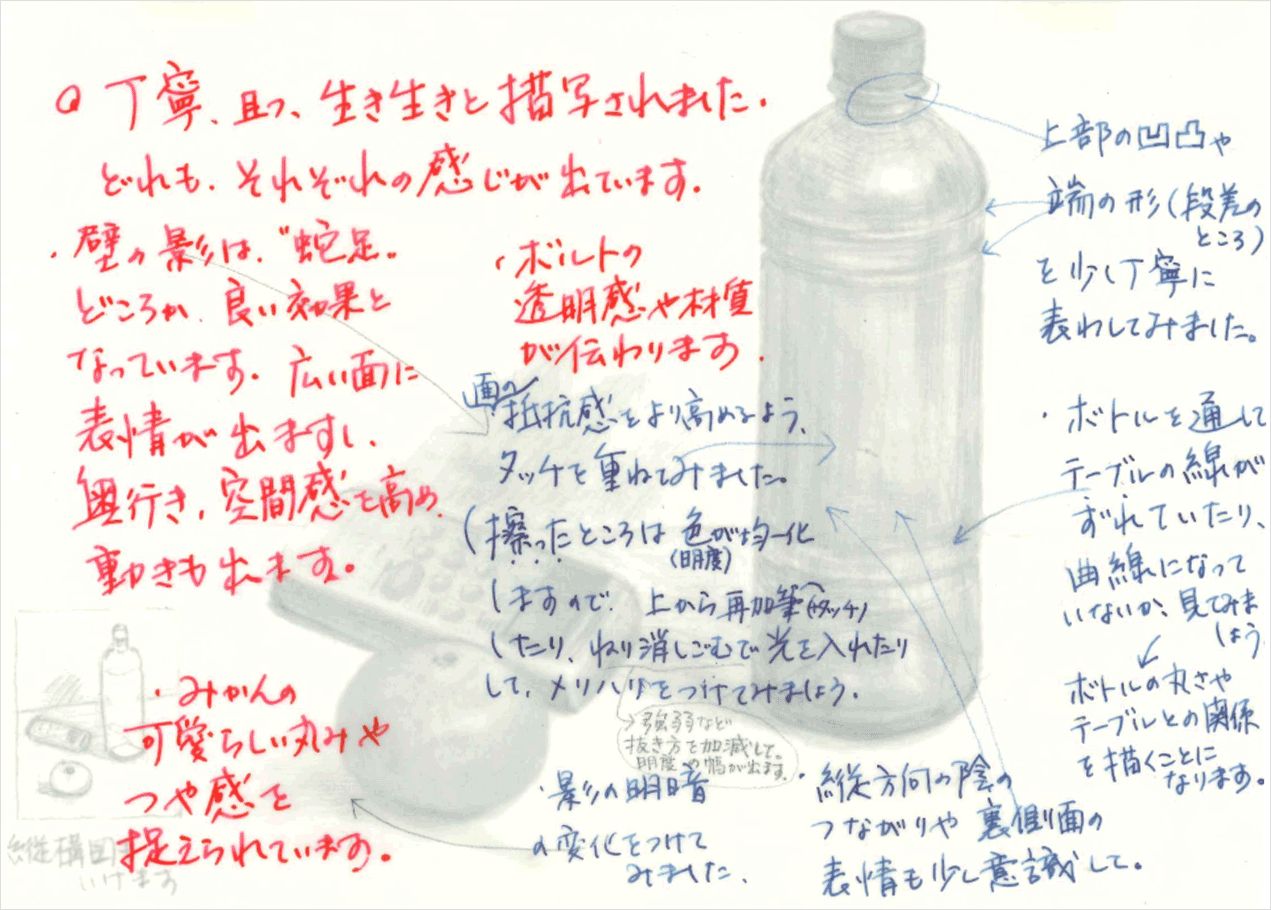 ○ 丁寧、且つ、生き生きと描写されました。
どれも、それぞれの感じが出ています。
・壁の影は、“蛇足„
どころか、良い効果と
なっています。広い面に
表情が出ますし、
奥行き、空間感を高め、
動きも出ます。
・ボルトの
透明感や材質
が伝わります。
・みかんの
可愛らしい丸みや
つや感を
捉えられています。
縦構図
いけます
画の
・抵抗感をより高めるよう、
タッチを重ねてみました。
(擦ったところは 色が均一化
(明度)
しますので、上から再加筆(+タッチ)
したり、ねり消しごむで光を入れたり
して、メリハリをつけてみましょう。
→強弱など
抜き方を加減して。
明度の幅が出ます。
・影の明暗
の変化をつけて
みました、
上部の凹凸や
端の形(段差の
ところ)
を少し丁寧に
表わしてみました。
・ボトルを通して
テーブルの線が
ずれていたり、
曲線になって
いないか、見てみま
しょう
ボトルの丸さや
テーブルとの関係
を描くことに
なります。
・縦方向の陰の
つながりや 裏側面の
表情も少し意識して。